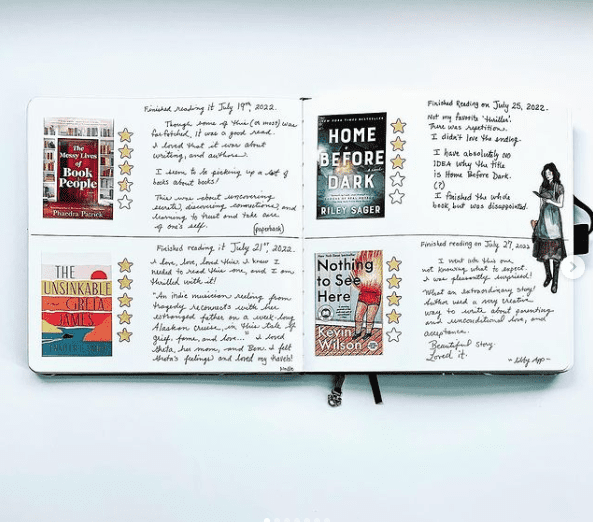 Finished reading it July 19th, 2022.
Though some of this (or most) was
far fetched, it was a good read.
I loved that it was about
writing, and authors.
I seem to be picking up a lot of
books about books!
This was about uncovering
secrets, discovering connections, and
learning to trust and take care
of one's self.
(paperback)
The Messy Lives
of
Book
People
Phaedra Patrick
Finished reading it July 21st, 2022
I love, love, loved this. I knew I
needed to read this one, and I am
thrilled with it!
"An indie musician reeling from
tragedy reconnects with her
estranged father on a week-long
Alaskan cruise, in this tale of
grief, fame, and love..." I loved
Greta, her mom, and Ben. I felt
Greta's feelings and loved my travels!
THE
UNSINKABLE
GRETA
JAMES
Finished Reading on July 25, 2022.
Not my favorite 'thriller'.
There was repetition.
I didn't love the ending.
I have absolutely no
IDEA why the title
is Home Before Dark.
(?)
I finished the whole
book, but was disappointed.
NEW YORK TIMES BESTSELLER
HOME
BEFORE
DARK
a novel
RILEY SAGER
Finished reading on July 27, 2022
I went into this one
not knowing what to expect.
I was pleasantly surprised!
What an extraordinary story!
Author used a very creative
way to write about parenting
and unconditional love, and
acceptance.
Beautiful story.
Loved it.
~ Libby App ~
Nothing
to See
Here
Kevin
Wilson